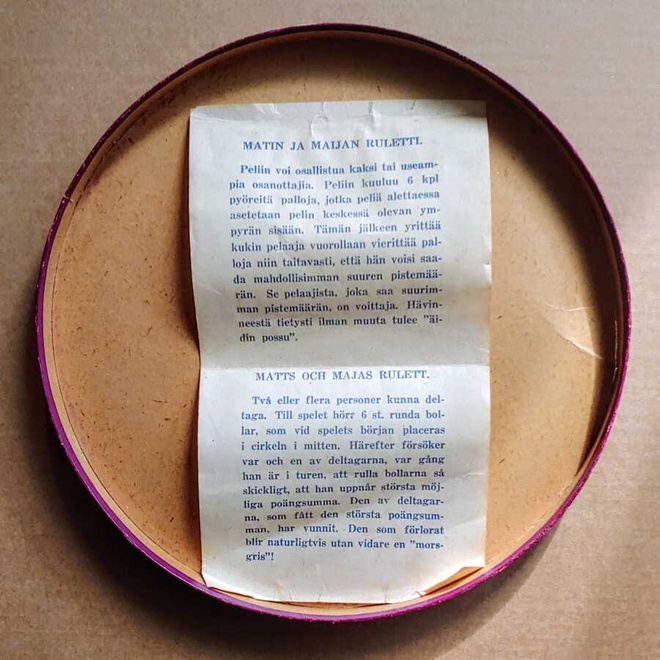 MATIN JA MAIJAN RULETTI.
Peliin voi osallistua kaksi tai useam-
pia osanottajia. Peliin kuuluu 6 kpl
pyöreitä palloja, jotka peliä alettaessa
asetetaan pelin keskessä olevan ym-
pyrän sisään. Tämän jälkeen yrittää
kukin pelaaja vuorollaan vierittää pal-
loja niin taitavasti, että hän voisi saa-
da mahdollisimman suuren pistemää-
rän. Se pelaajista, joka saa suurim-
man pistemäärän, on voittaja. Hävin-
neestä tietysti ilman muuta tulee "äi-
din possu".
MATTS OCH MAJAS RULETT.
Två eller flera personer kunna del-
taga. Till spelet hörr 6 st. runda bol-
lar, som vid spelets början placeras
i cirkeln i mitten. Härefter försöker
var och en av deltagarna, var gång
han är i turen, att rulla bollarna så
skickligt, att han uppnår största möj-
liga poängsumma. Den av deltagar-
na, som fått den största poängsum-
man, har vunnit. Den som förlorat
blir naturligtvis utan vidare en "mors-
gris"!